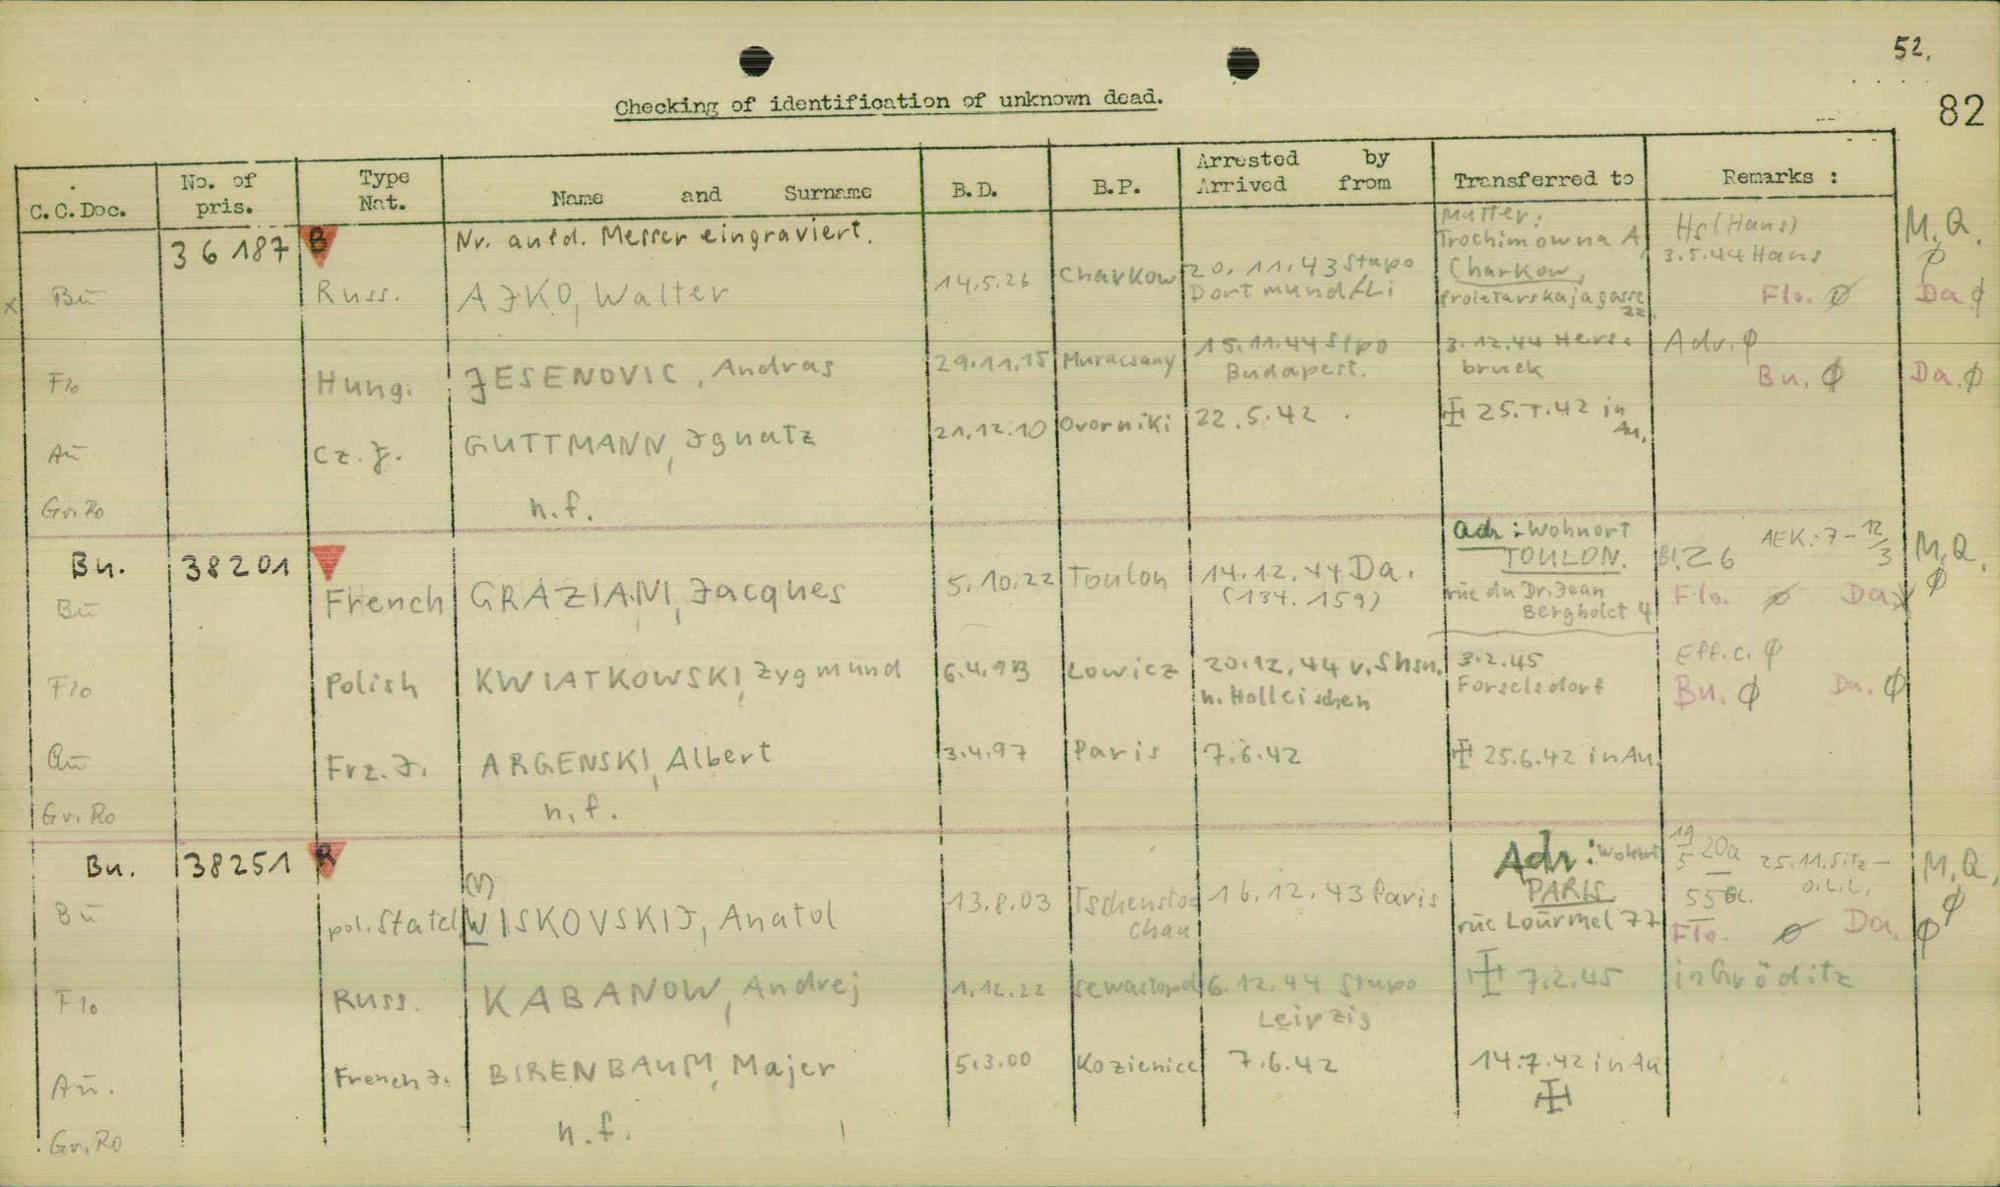 52.
82
Checking of identification of unknown dead.
C.C.Doc. No. of pris. Type Nat. Name and Surname B.D. B.P. Arrested by Arrived from Transferred to Remarks :
36187 B Nr. auf d. Messer eingraviert. Mutter: Trochimowna A, Hs(Hans) M.Q. ϕ
x Bu Russ. AJKO, Walter 14.5.26 Charkow 20.11.43 Stapo Dortmund/Li Charkow, Proletarskajagasse 22. 3.5.44 Hans Flo. ϕ Da ϕ
Flo Hung. JESENOVIC, Andras 29.11.15 Muracsany 15.11.44 Sipo Budapest. 3.12.44 Hersbruck Adr. ϕ Bu. ϕ Da. ϕ
Au Cz. J. GUTTMANN, Ignatz 21.12.10 Ovorniki 22.5.42 25.7.42 in Au.
Gr.Ro n.f.
Bu. 38201 Adr: Wohnort TOULON. Bl.26 AEK.: 7-12/3 M.Q. ϕ
Bu French GRAZIANI, Jacques 5.10.22 Toulon 14.12.44 Da. (134.159) rue du Dr. Jean Bergholet 4 Flo. ϕ Da
Flo Polish KWIATKOWSKI, Zygmund 6.4.13 Lowicz 20.12.44 v. Shsn. n. Holleischen 3.2.45 Eff.c. ϕ Bu. ϕ Da. ϕ
Au Frz. J. ARGENSKI, Albert 3.4.97 Paris 7.6.42 25.6.42 in Au.
Gr.Ro n.f.
Bu. 38251 R (V) Adr: Wohnort PARIS 19/5 20a 25.11. M.Q. ϕ
Bu pol. Statel WISKOVSKIJ, Anatol 13.8.03 Tschenstochau 16.12.43 Paris rue Lourmel 77 Flo. ϕ Da. ϕ
Flo Russ. KABANOW, Andrej 1.12.22 Sewastopol 6.12.44 Stapo Leipzig 7.2.45 in Gröditz
Au. French J. BIRENBAUM, Majer 5.3.00 Kozienice 7.6.42 14.7.42 in Au
Gr.Ro n.f.